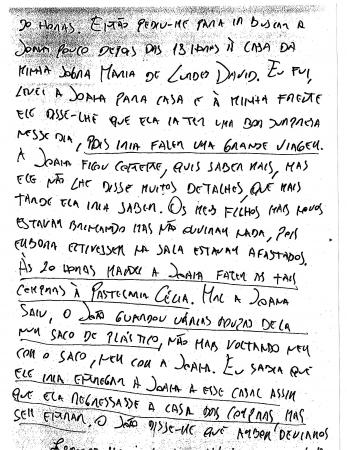 20 HORAS. ENTÃO PEDIU-ME PARA IR BUSCAR A
JOANA POUCO DEPOIS DAS 18 HORAS À CASA DA
MINHA SOGRA MARIA DE LURDES DAVID. EU FUI,
LEVEI A JOANA PARA CASA E À MINHA FRENTE
ELE DISSE-LHE QUE ELA IA TER UMA BOA SURPRESA
NESSE DIA, POIS IRIA FAZER UMA GRANDE VIAGEM.
A JOANA FICOU CONTENTE, QUIS SABER MAIS, MAS
ELE NÃO LHE DISSE MUITOS DETALHES, QUE MAIS
TARDE ELA IRIA SABER. OS MEUS FILHOS MAIS NOVOS
ESTAVAM BRINCANDO MAS NÃO OUVIRAM NADA, POIS
EMBORA ESTIVESSEM NA SALA ESTAVAM AFASTADOS.
ÀS 20 HORAS MANDEI A JOANA FAZER AS TAIS
COMPRAS À PASTELARIA CÉLIA. MAL A JOANA
SAIU, O JOÃO GUARDOU VÁRIAS ROUPAS DELA
NUM SACO DE PLÁSTICO, NÃO MAIS VOLTANDO NEM
COM O SACO, NEM COM A JOANA. EU SABIA QUE
ELE IRIA ENTREGAR A JOANA A ESSE CASAL ASSIM
QUE ELA REGRESSASSE A CASA DAS COMPRAS MAS
SEM ENTRAR. O JOÃO DISSE-ME QUE AMBOS DEVÍAMOS